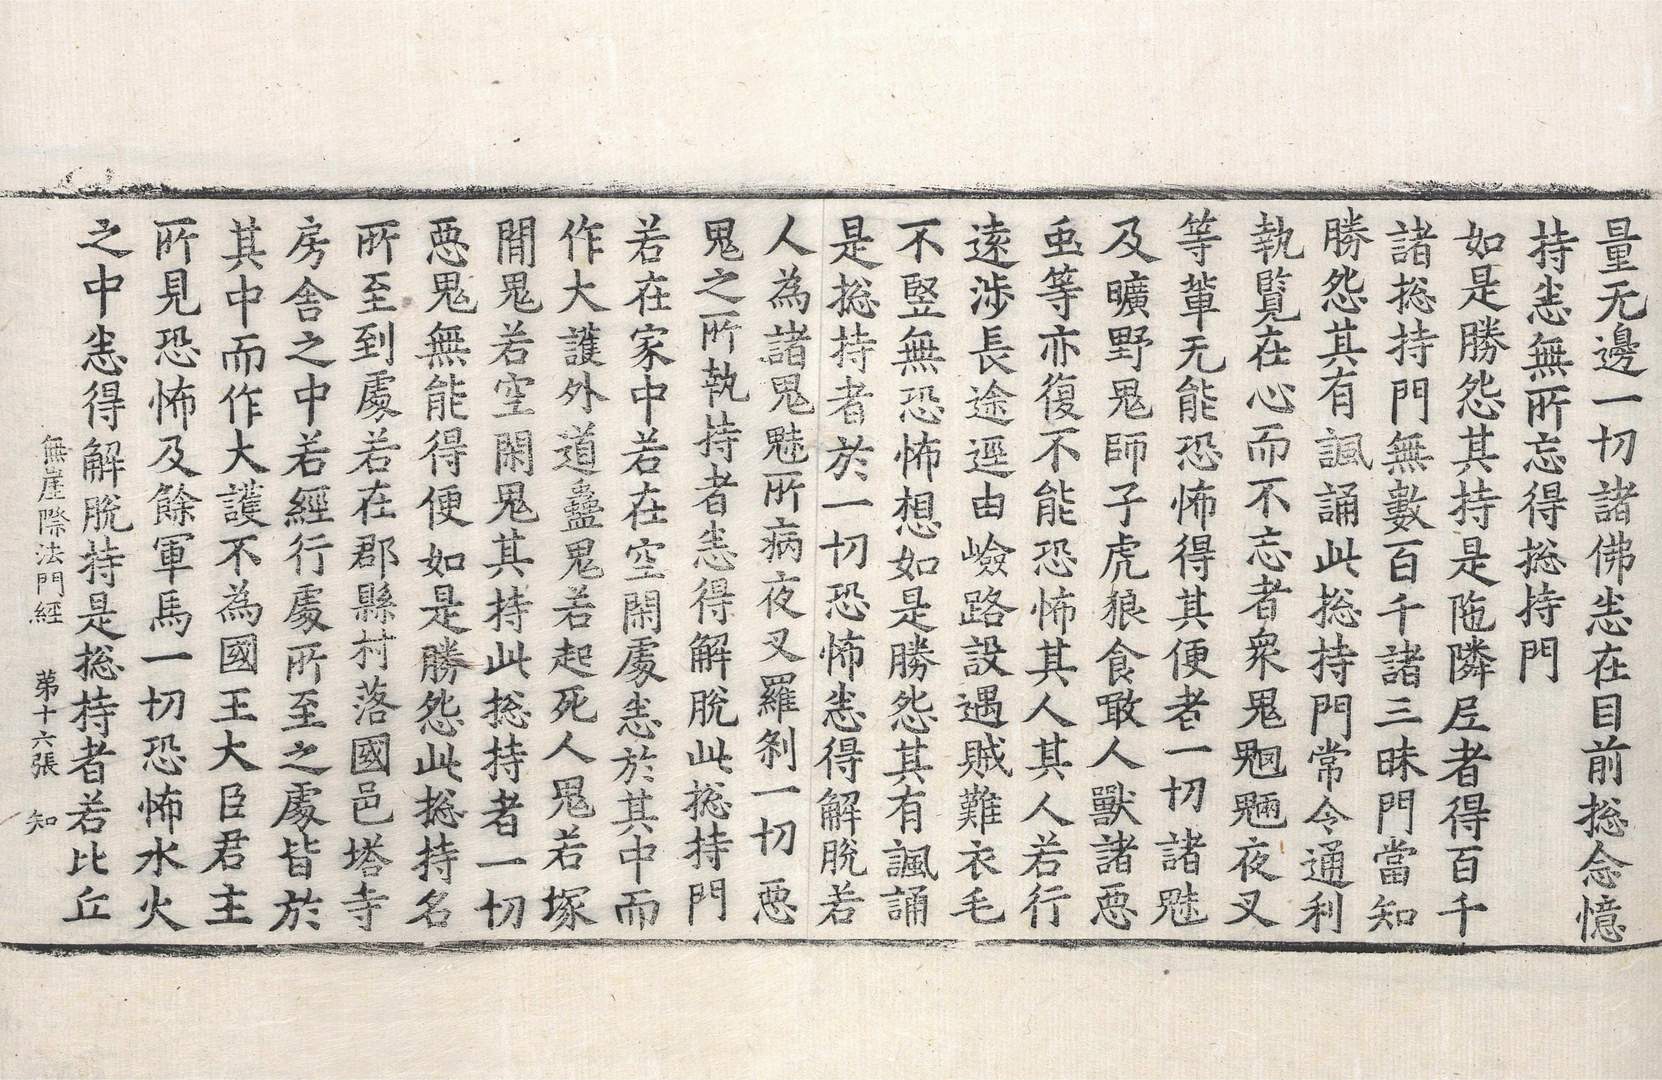 量无邊一切諸佛悉在目前捴念憶
持悉無所忘得捴持門
如是勝怨其持是陁隣尼者得百千
諸捴持門無數百千諸三昧門當知
勝怨其有諷誦此捴持門常令通利
執覽在心而不忘者衆鬼魍魎夜叉
等輩无能恐怖得其便者一切諸魅
及曠野鬼師子虎狼食敢人獸諸惡
虫等亦復不能恐怖其人其人若行
逺涉長途逕由嶮路設遇賊難衣毛
不竪無恐怖想如是勝怨其有諷誦
是捴持者於一切恐怖悉得解脫若
人為諸鬼魅所病夜叉羅剎一切惡
鬼之所執持者悉得解脫此捴持門
若在家中若在空閑處悉於其中而
作大護外道蠱鬼若起死人鬼若塚
間鬼若空閑鬼其持此捴持者一切
惡鬼無能得便如是勝怨此捴持名
所至到處若在郡縣村落國邑塔寺
房舍之中若經行處所至之處皆於
其中而作大護不為國王大臣君主
所見恐怖及餘軍馬一切恐怖水火
之中悉得解脫持是捴持者若比丘
無崖際法門經　第十六張　知